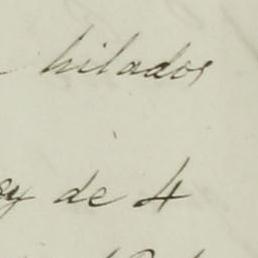 hilados
de 4